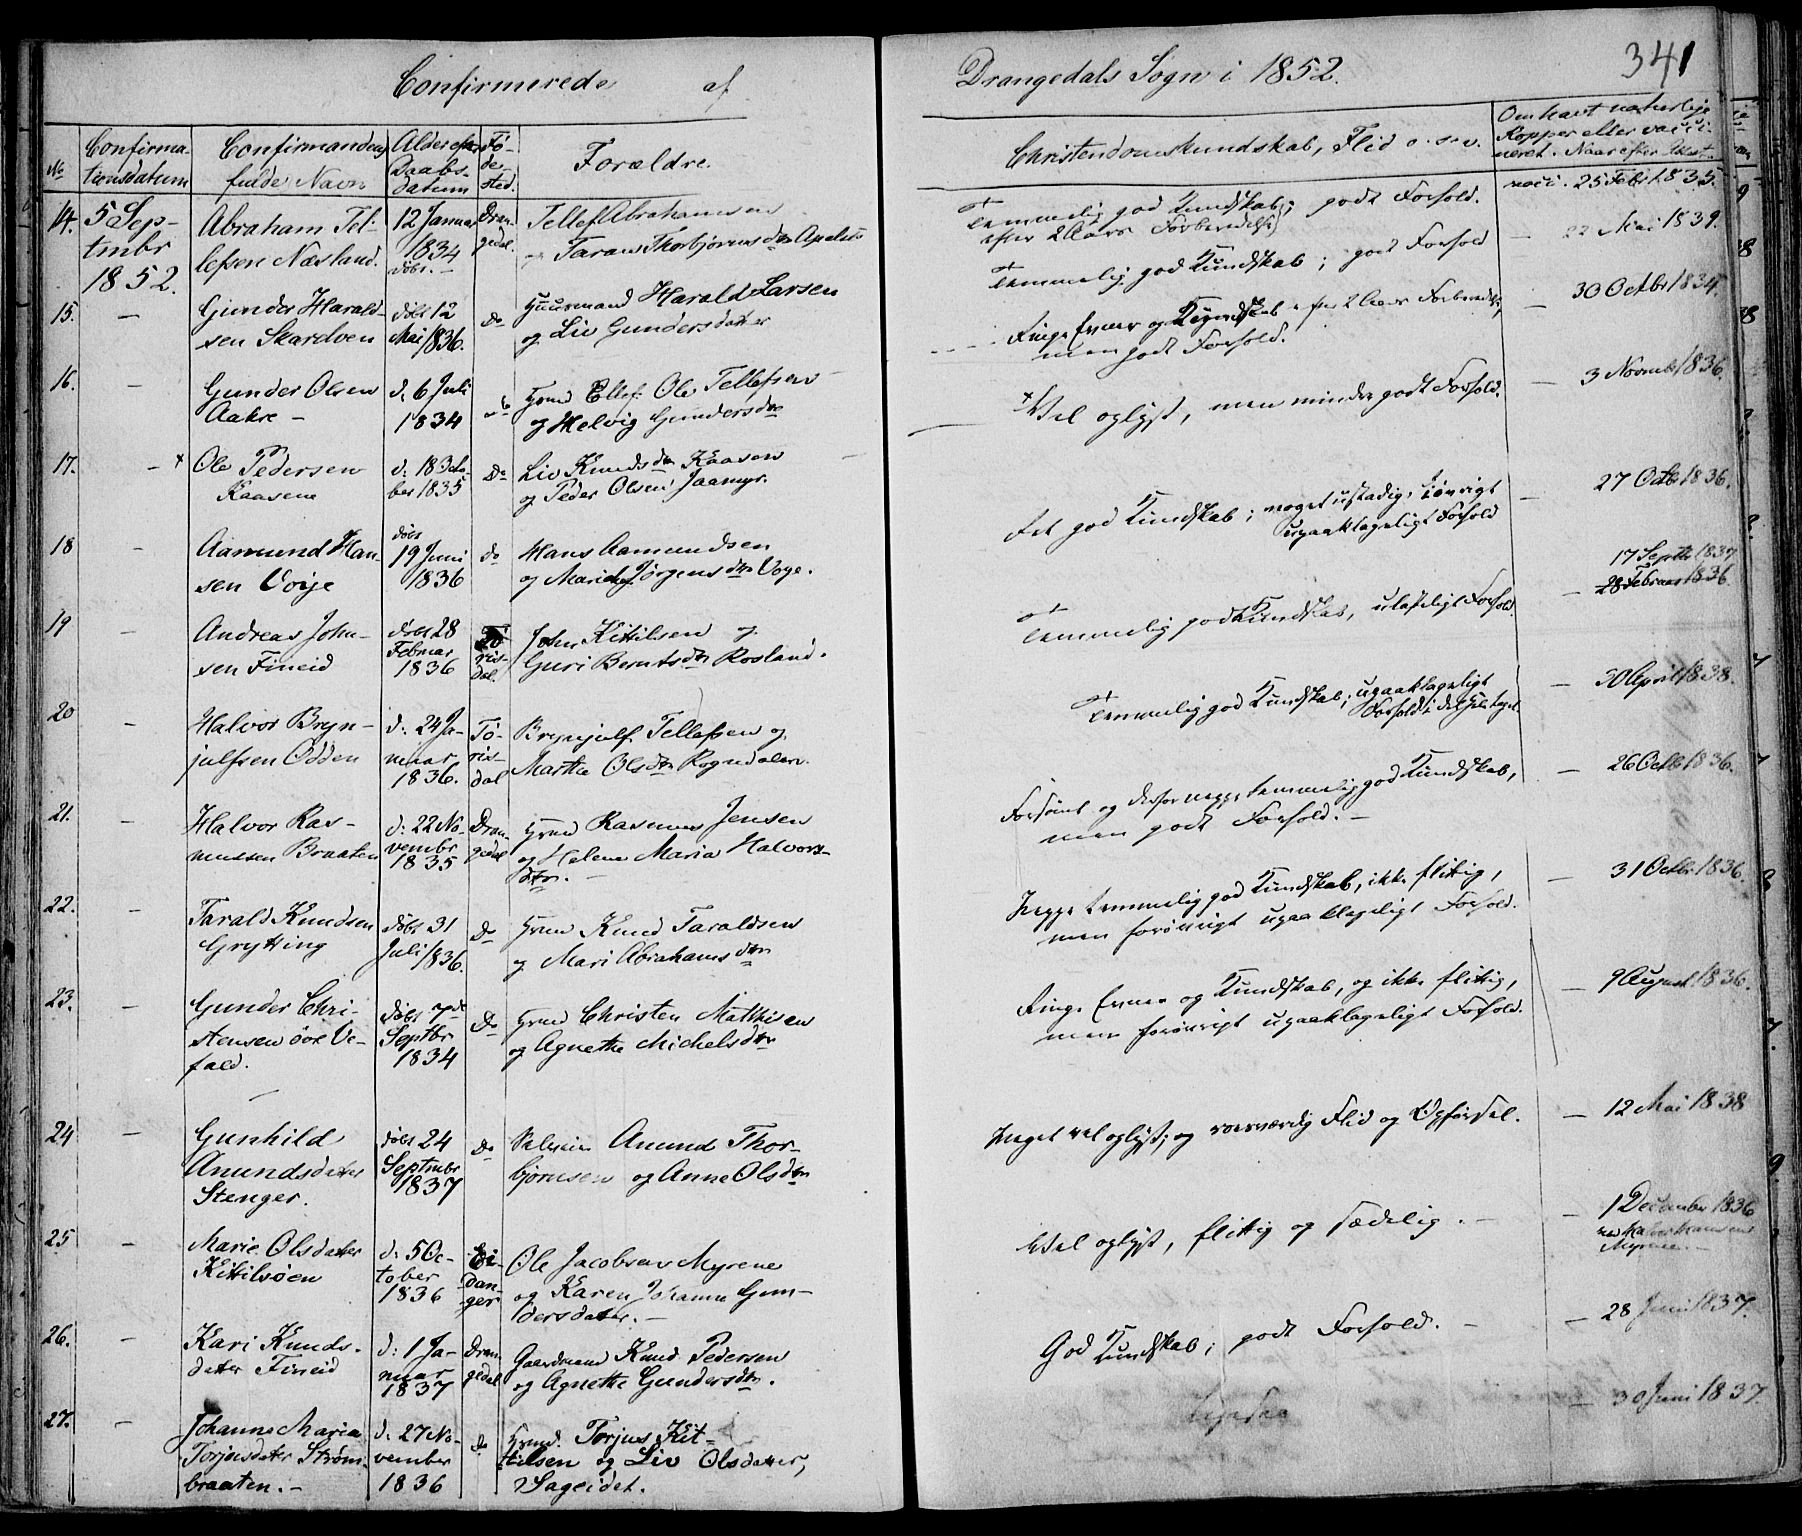 Confirmerede af
Drangedals Sogn i 1852.
341
No
Confirma-
tionsdatum
Confirmandens
fulde Navn
Alder efter
Daabs-
datum
Fø-
de-
sted.
Forældre.
Christendomskundskab, Flid o. s. v.
Om havt naturlige
Kopper eller vacci-
neret. Naar efter Attest.
14.
5 Sep-
tmbr
1852.
Abraham Tel-
lefsen Næsland.
12 Januar
1834
døbt.
Dran-
gedal.
Tellef Abrahamsen
og Taran Thorbjørnsdtr
Temmelig god Kundskab; godt Forhold.
efter 2 Aars Forberedelse
vacci. 25 Febr 1835.
15.
Gunder Harald-
sen Skardven
døbt 12
Mai 1836.
Do
Huusmand Harald Larsen
og Liv Gundersdatter
Temmelig god Kundskab; godt Forhold
22 Mai 1839.
16.
Gunder Olsen
Aakre
d. 6 Juli
1834
Do
Grmd Ellef Ole Tellefsen
og Helvig Gundersdtr
Ringe Evner og Kundskab efter 2 Aars Forberedelse,
men godt Forhold.
30 Octbr 1834.
17.
Ole Pedersen
Kaasene
d. 18 Octo-
ber 1835
Do
Liv Knudsdtr Kaasen
og Peder Olsen Jaamyr.
Vel oplyst, men mindre godt Forhold.
3 Novmb 1836.
18
Aamund Han-
sen Voje
døbt
19 Juni
1836
do
Hans Aamundsen
og Marie Jørgensdtr Voje.
Ret god Kundskab; noget ustadig, iøvrigt
upaaklageligt Forhold
27 Octb 1836.
19
Andreas John-
sen Fineid
døbt 28
Februar
1836
Tø-
ris-
dal.
John Kittilsen og
Guri Berntsdtr Rosland.
Temmelig god Kundskab, ulasteligt Forhold.
17 Septb 1837
28 Februar 1836.
20
Halvor Bryn-
julfsen Odden
d. 24 Ja-
nuar
1836.
Tø-
ris-
dal
Brynjulf Tellefsen og
Marthe Olsdtr Rogndalen.
Temmelig god Kundskab; upaaklageligt
Forhold i det hele taget.
30 April 1838.
21.
Halvor Ras-
mussen Braaten
d. 22 No-
vembr
1835
Dran-
gedal
Grmd Rasmus Jensen
og Helene Maria Halvors-
dtr.
Forsømt og derfor neppe temmelig god Kundskab,
men godt Forhold.
26 Octb 1836.
22.
Tarald Knudsen
Grytting
døbt 31
Juli 1836.
Do
Grmd Knud Taraldsen
og Mari Abrahamsdtr
Neppe temmelig god Kundskab, ikke flittig,
men forøvrigt upaaklageligt Forhold.
31 Octbr 1836.
23.
Gunder Chri-
stensen øvre Ve-
fald.
døbt 7de
Septbr
1834
Do
Grmd Christen Mathisen
og Agnethe Michelsdtr
Ringe Evner og Kundskab, og ikke flittig,
men forøvrigt upaaklageligt Forhold.
9 August 1836.
24
Gunhild
Anundsdatter
Stenger.
døbt 24
Septmbr
1837
do
Anund Thor-
bjørnsen og Anne Olsdtr
Meget vel oplyst; og roesværdig Flid og Opførsel.
12 Mai 1838
25
Marie Olsdatter
Kittilsøen
d. 5 Oc-
tober
1836
Ei-
dan-
ger
Ole Jacobsen Myrene
og Karen Johanne Gun-
dersdatter.
Vel oplyst, flittig og sædelig.
1 December 1836
Myrene.
26.
Kari Knuds-
datter Fineid
d. 1 Ja-
nuar
1837
Dran-
gedal
Gaardmand Knud Pedersen
og Agnethe Gundersdtr.
God Kundskab; godt Forhold.
28 Juni 1837.
27.
Johanne Maria
Torjusdatter Strøm-
braaten.
d. 27 No-
vember
1836
do
Grmd. Torjus Kit-
tilsen og Liv Olsdatter,
Sageidet.
30 Juni 1837.